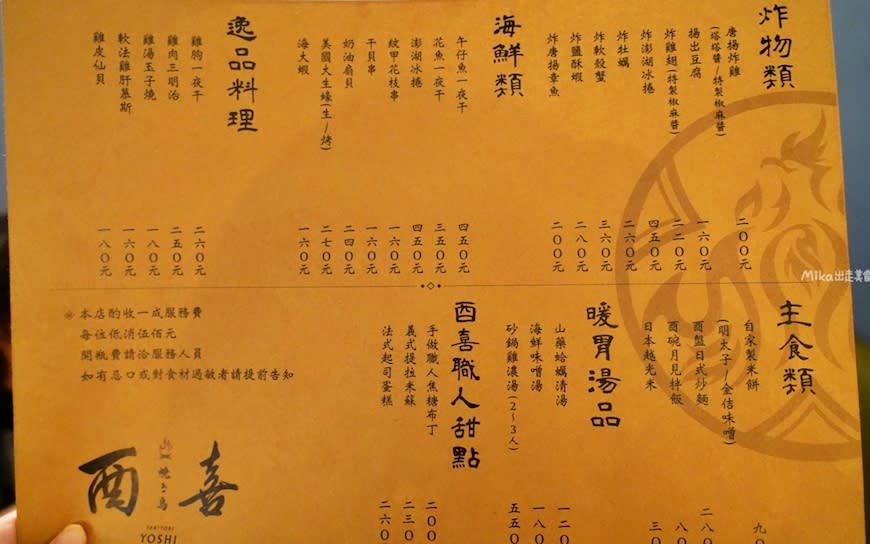 炸物類
唐揚炸雞 二〇〇元
(塔塔醬/特製椒麻醬)
揚出豆腐 一六〇元
炸雞翅(特製椒麻醬) 二二〇元
炸澎湖冰捲 四五〇元
炸牡蠣 二六〇元
炸軟殼蟹 三六〇元
炸鹽酥蝦 二八〇元
炸唐揚章魚 二〇〇元
海鮮類
午仔魚一夜干 四五〇元
花魚一夜干 三五〇元
澎湖冰捲 四五〇元
紋甲花枝串 一六〇元
干貝串 一六〇元
奶油扇貝 二四〇元
美國大生蠔(生/烤) 二七〇元
海大蝦 一六〇元
逸品料理
雞胸一夜干 二六〇元
雞肉三明治 二五〇元
雞湯玉子燒 一八〇元
軟法雞肝慕斯 一六〇元
雞皮仙貝 一八〇元
Mika出走美食
主食類
自家製米餅 九〇
(明太子/金桔味噌)
酉盤日式炒麵 二八〇
酉碗月見拌飯 八〇
日本越光米 三〇
暖胃湯品
山藥蛤蠣清湯 一二〇
海鮮味噌湯 一八〇
砂鍋雞濃湯(2~3人) 五五〇
酉喜職人甜點
手做職人焦糖布丁 二〇〇
義式提拉米蘇 二三〇
法式起司蛋糕 二六〇
※本店酌收一成服務費
每位低消伍佰元
開瓶費請洽服務人員
如有忌口或對食材過敏者請提前告知
酉喜
焼き鳥
YAKITORI
YOSHI